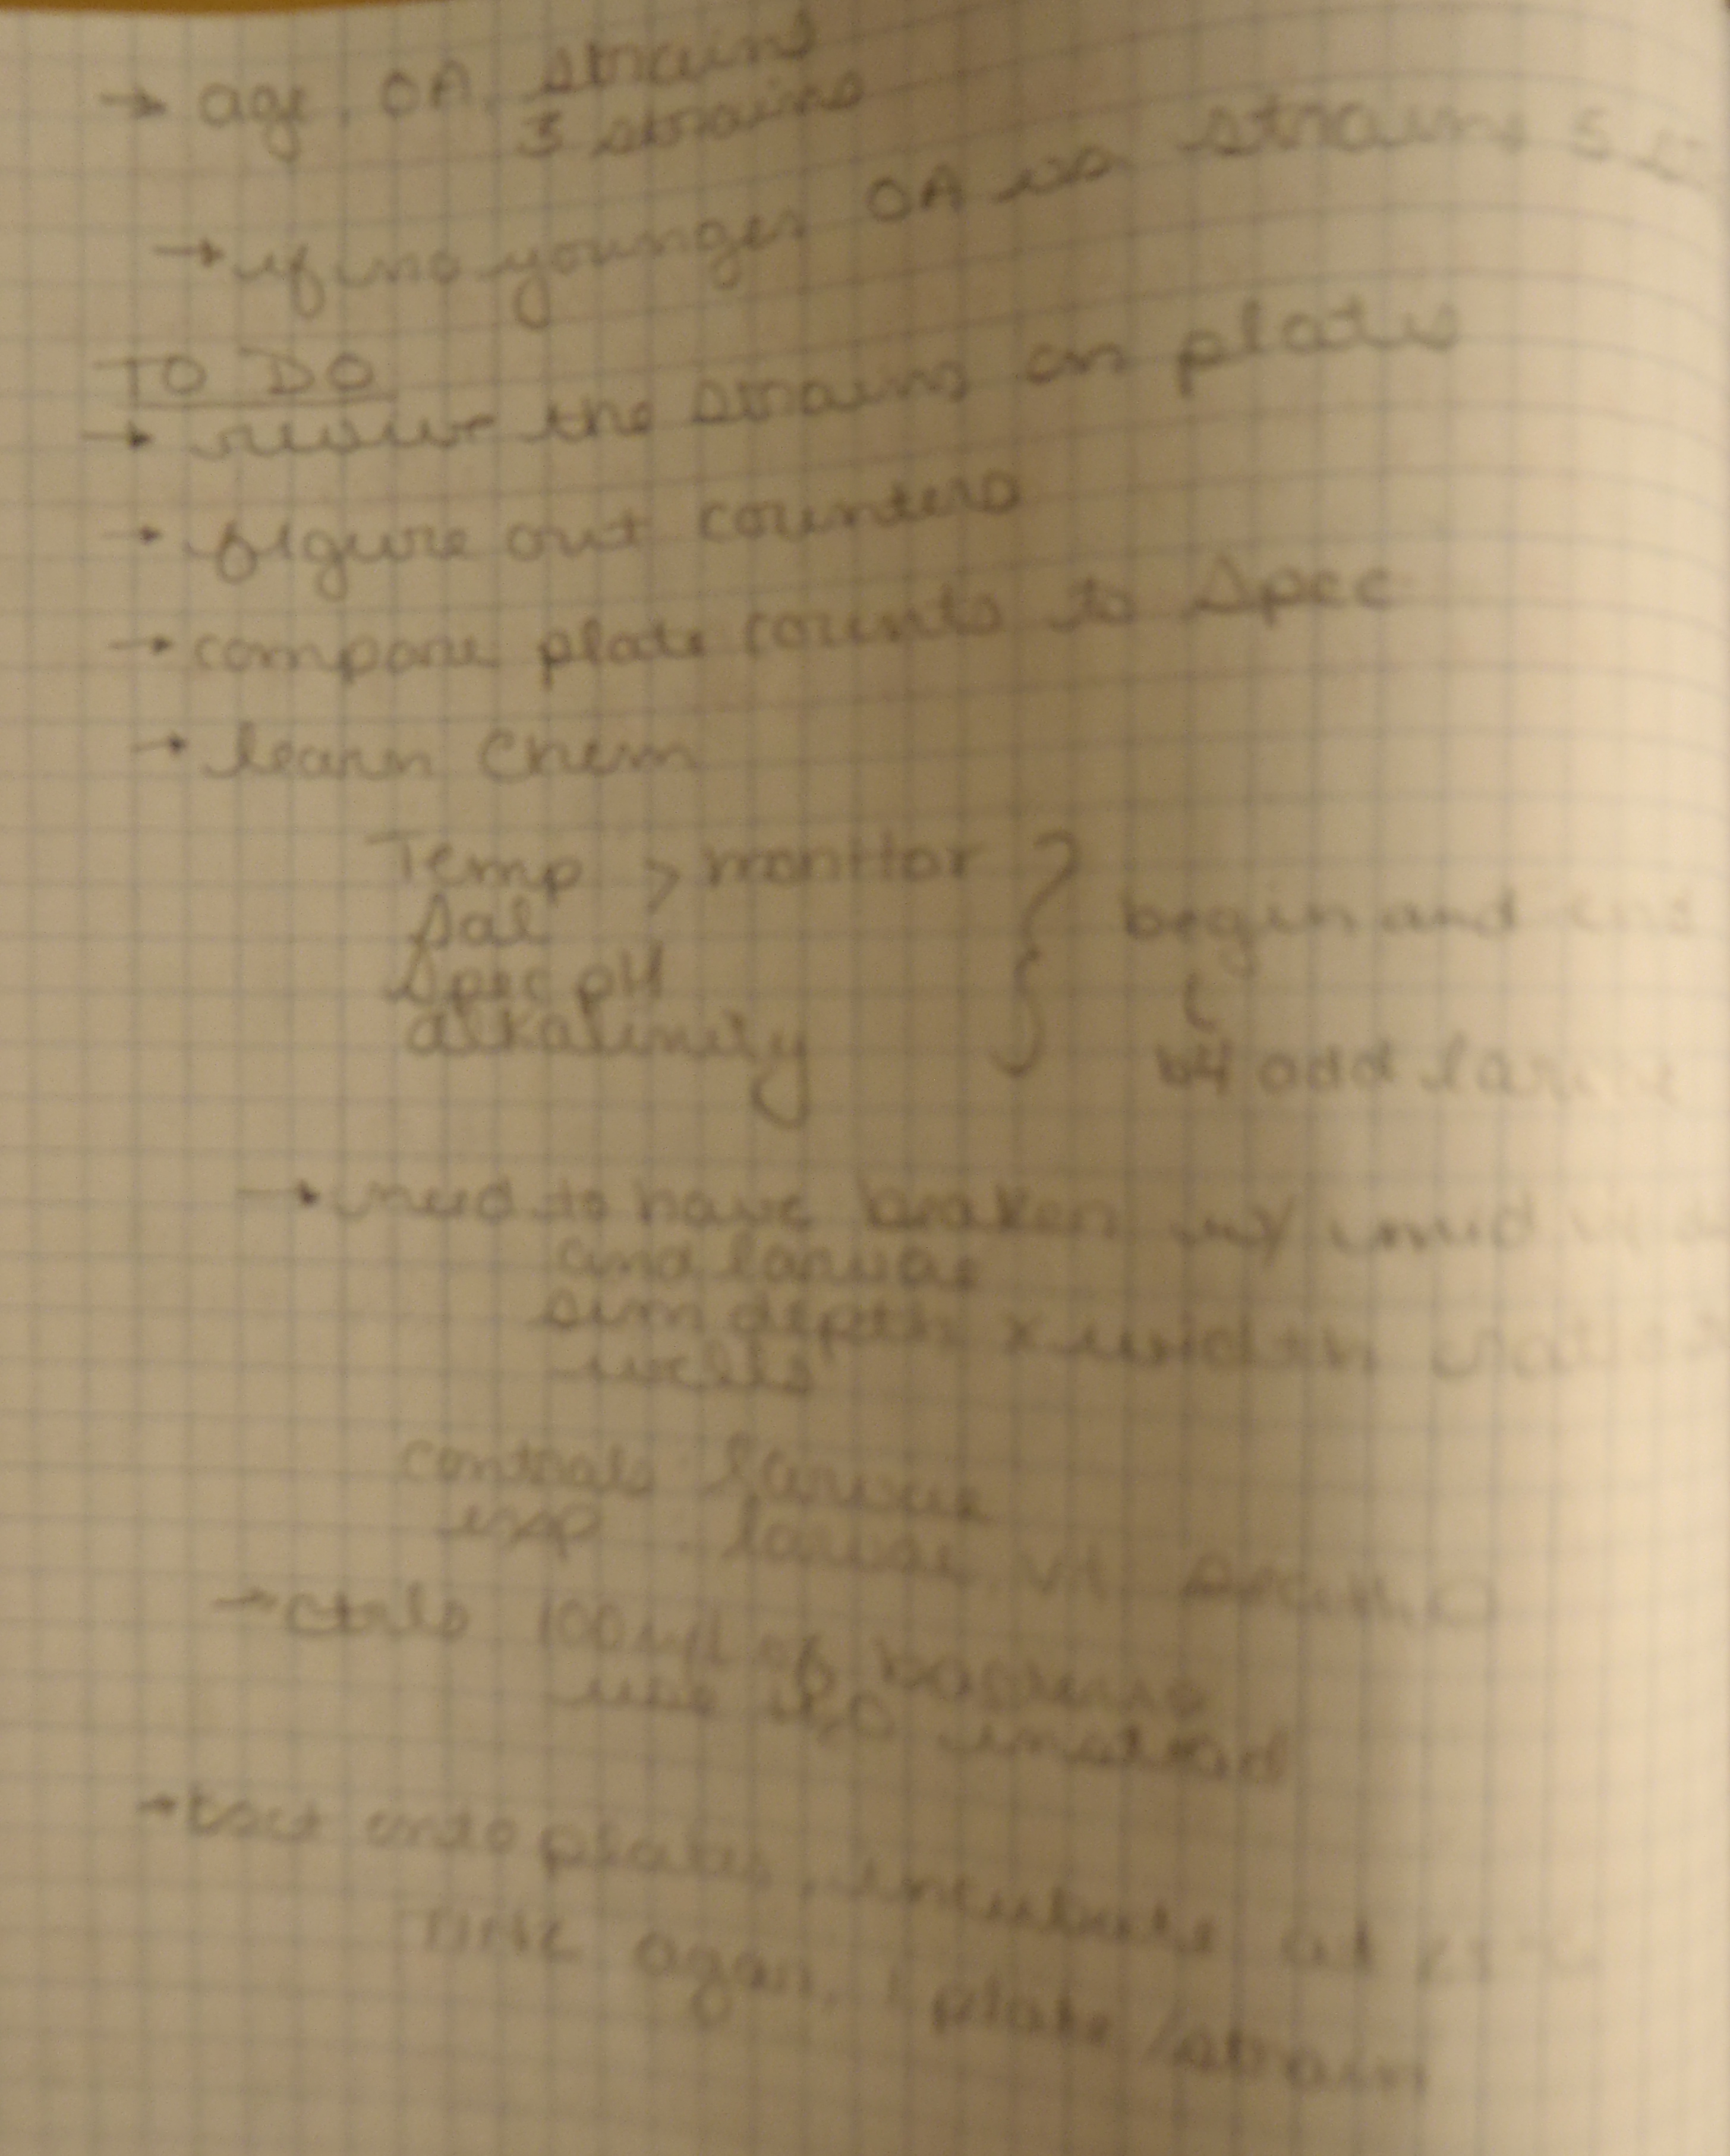 → age, OA, strain
3 strains
→ if no younger OA vs. strains 5
TO DO
→ revive the strains on plate
→ figure out counters
→ compare plate counts to spec
→ learn Chem
Temp > monitor
Sal
begin and end
Spec pH
alkalinity
b4 add larvae
→ need to have beaker w/
and larvae
sim depth x width ratio
wells
controls larvae
exp larvae
→ ctrls 100 of bacteria
use H2O instead
→ bact onto plates, incubate at
agar, 1 plate/strain